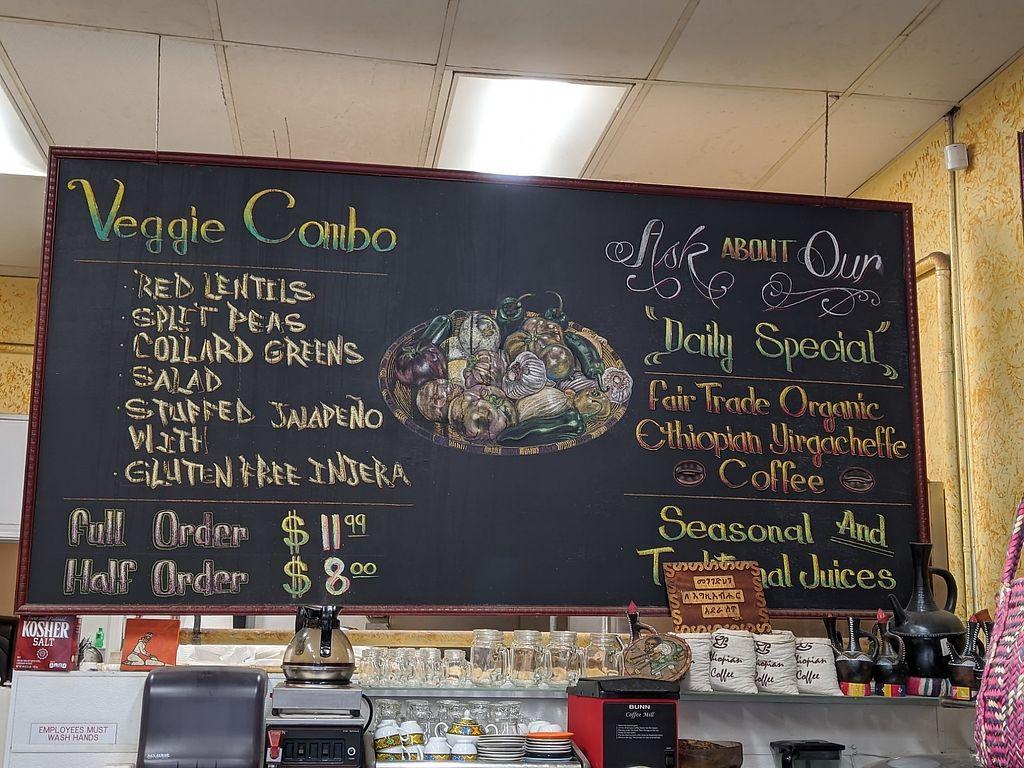 Veggie Combo
RED LENTILS
SPLIT PEAS
COLLARD GREENS
SALAD
STUFFED JALAPEÑO
WITH
GLUTEN FREE INJERA
Full Order $11.99
Half Order $8.00
Ask ABOUT Our
"Daily Special"
Fair Trade Organic
Ethiopian Yirgacheffe
Coffee
Seasonal And
nal Juices
መንገድህን
ለ እግዚአብሔር
አደራ ስጥ
KOSHER
SALT
EMPLOYEES MUST
WASH HANDS
BUNN
Coffee Mill
Coffee
Coffee
Coffee